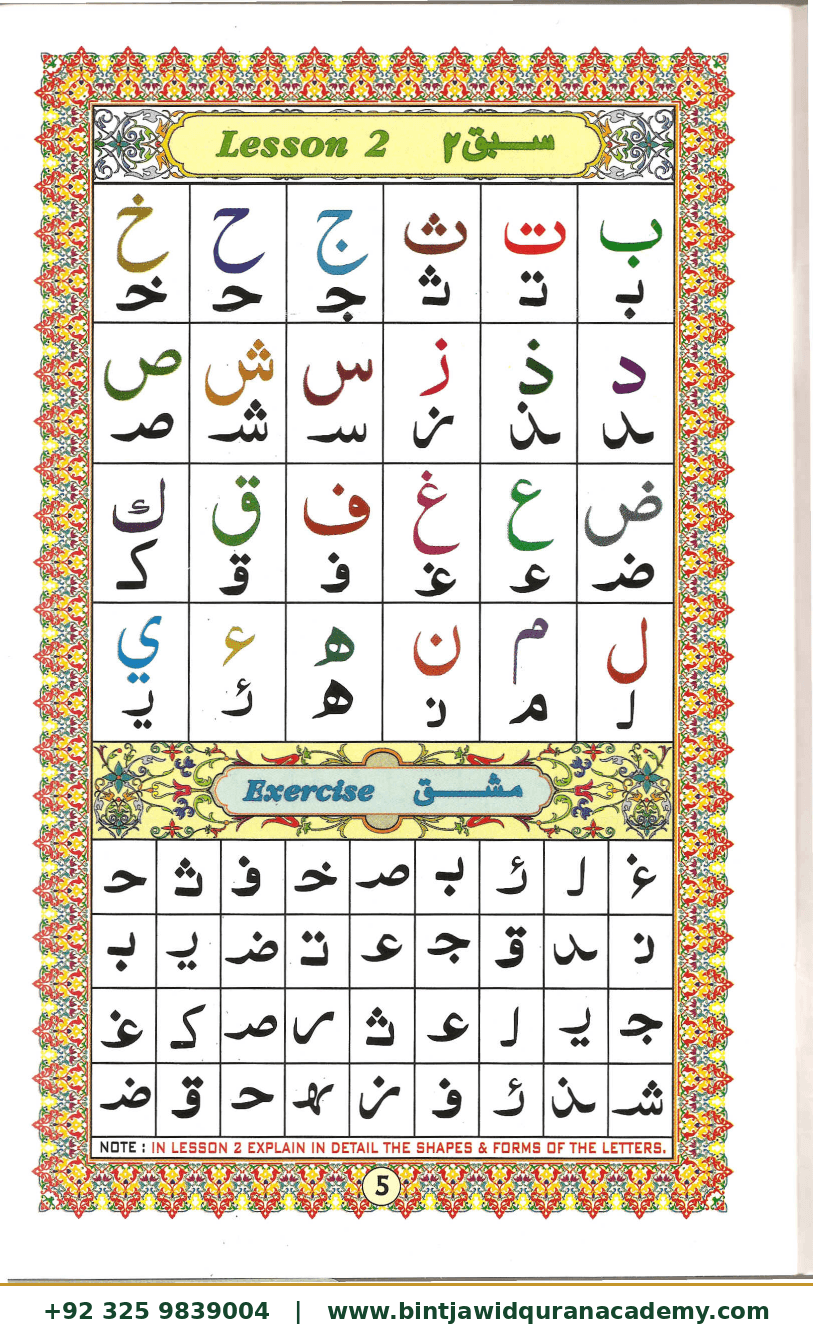 Lesson 2 سبق ۲
ب ت ث ج ح خ
بـ تـ ثـ جـ حـ خـ
د ذ ز س ش ص
ـد ـذ ـز سـ شـ صـ
ض ع غ ف ق ك
ضـ عـ غـ فـ قـ كـ
ل م ن ه ء ي
لـ مـ نـ هـ ئـ يـ
Exercise مشق
غـ لـ ئـ بـ صـ خـ فـ ثـ حـ
نـ ـد قـ جـ عـ تـ ضـ يـ بـ
جـ يـ لـ عـ ثـ ـر صـ كـ غـ
شـ ـذ ئـ فـ ـز ـهـ حـ قـ ضـ
NOTE : IN LESSON 2 EXPLAIN IN DETAIL THE SHAPES & FORMS OF THE LETTERS.
5
+92 325 9839004 | www.bintjawidquranacademy.com